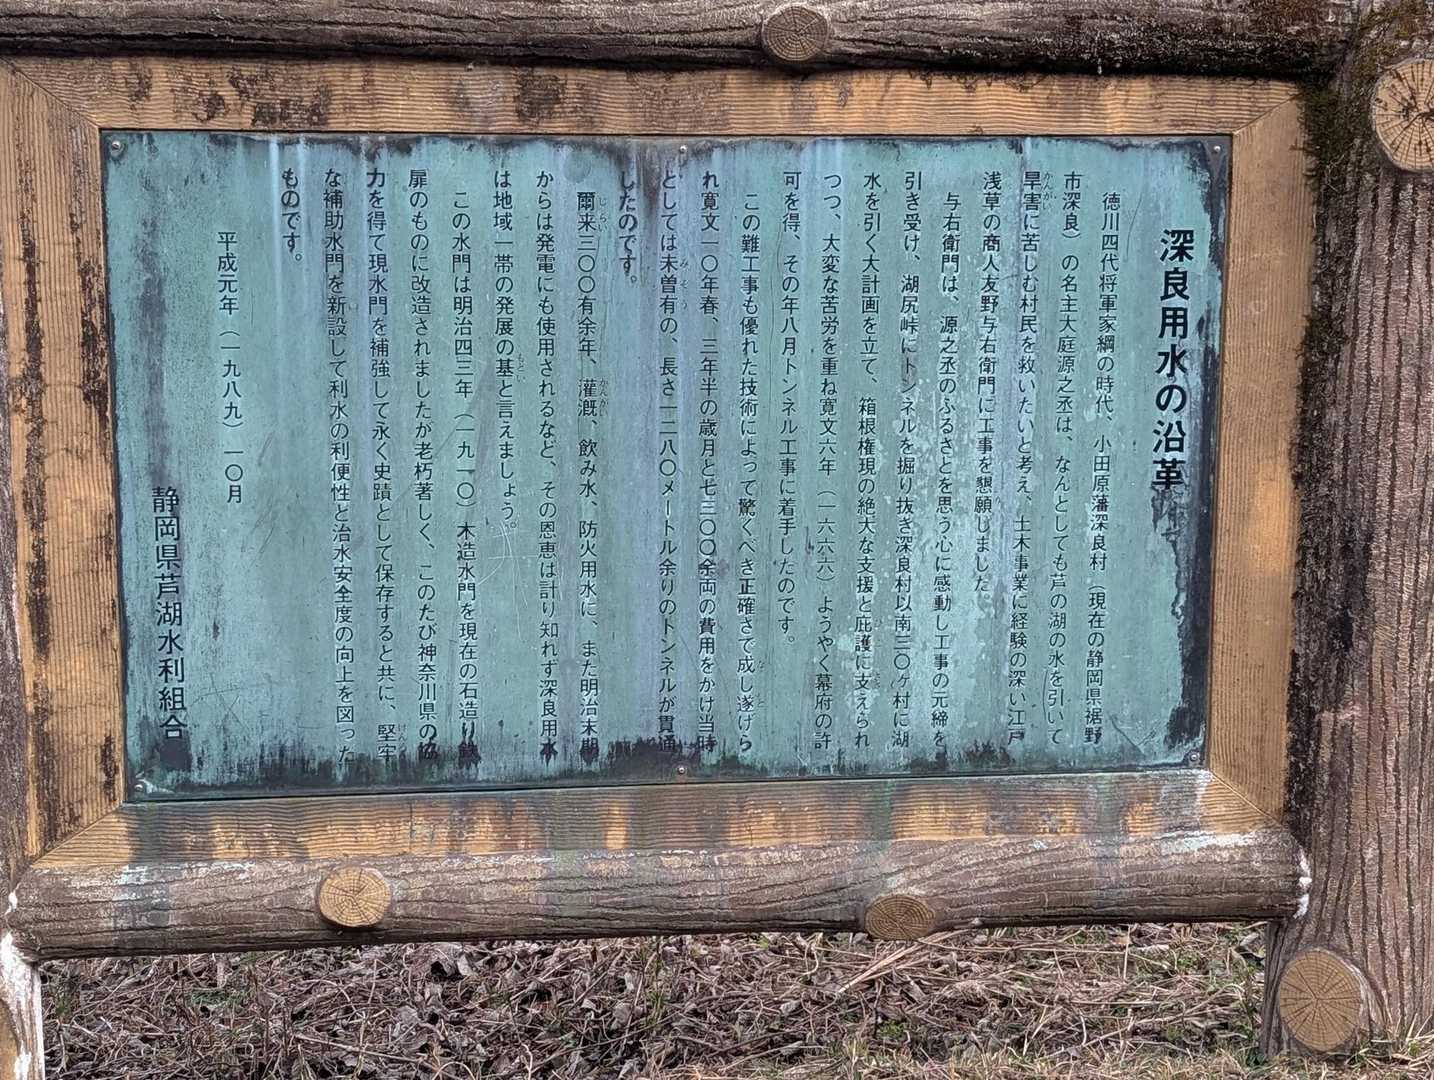 深良用水の沿革
徳川四代将軍家綱の時代、小田原藩深良村（現在の静岡県裾野
市深良）の名主大庭源之丞は、なんとしても芦の湖の水を引いて
旱害に苦しむ村民を救いたいと考え、土木事業に経験の深い江戸
浅草の商人友野与右衛門に工事を懇願しました
与右衛門は、源之丞のふるさとを思う心に感動し工事の元締を
引き受け、湖尻峠にトンネルを掘り抜き深良村以南三〇ヶ村に湖
水を引く大計画を立て、箱根権現の絶大な支援と庇護に支えられ
つつ、大変な苦労を重ね寛文六年（一六六六）ようやく幕府の許
可を得、その年八月トンネル工事に着手したのです。
この難工事も優れた技術によって驚くべき正確さで成し遂げら
れ寛文一〇年春、三年半の歳月と七三〇〇余両の費用をかけ当時
としては未曽有の、長さ一二八〇メートル余りのトンネルが貫通
したのです。
爾来三〇〇有余年、灌漑、飲み水、防火用水に、また明治末期
からは発電にも使用されるなど、その恩恵は計り知れず深良用水
は地域一帯の発展の基と言えましょう。
この水門は明治四三年（一九一〇）木造水門を現在の石造り鉄
扉のものに改造されましたが老朽著しく、このたび神奈川県の協
力を得て現水門を補強して永く史蹟として保存すると共に、堅牢
な補助水門を新設して利水の利便性と治水安全度の向上を図った
ものです。
平成元年（一九八九）一〇月
静岡県芦湖水利組合